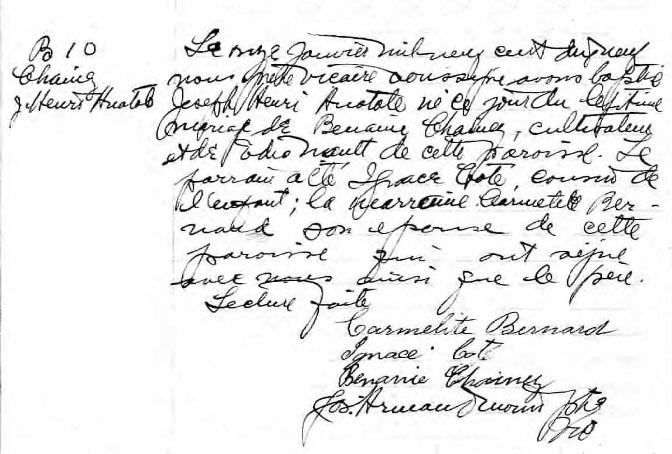 B 10
Chainey
J. Henri Anatole
Le onze Janvier mil neuf cent dix neuf
nous prêtre vicaire soussigné avons baptisé
Joseph Henri Anatole né ce jour du légitime
mariage de Benanie Chainey, cultivateur
et de nault de cette paroisse. Le
parrain a été Ignace Coté, cousin de
l'enfant; la marraine Carmelite Ber-
nard son épouse de cette
paroisse qui ont signé
avec nous ainsi que le père.
Lecture faite
Carmelite Bernard
Ignace Coté
Benanie Chainey
Jos. Armand ptre
Vic